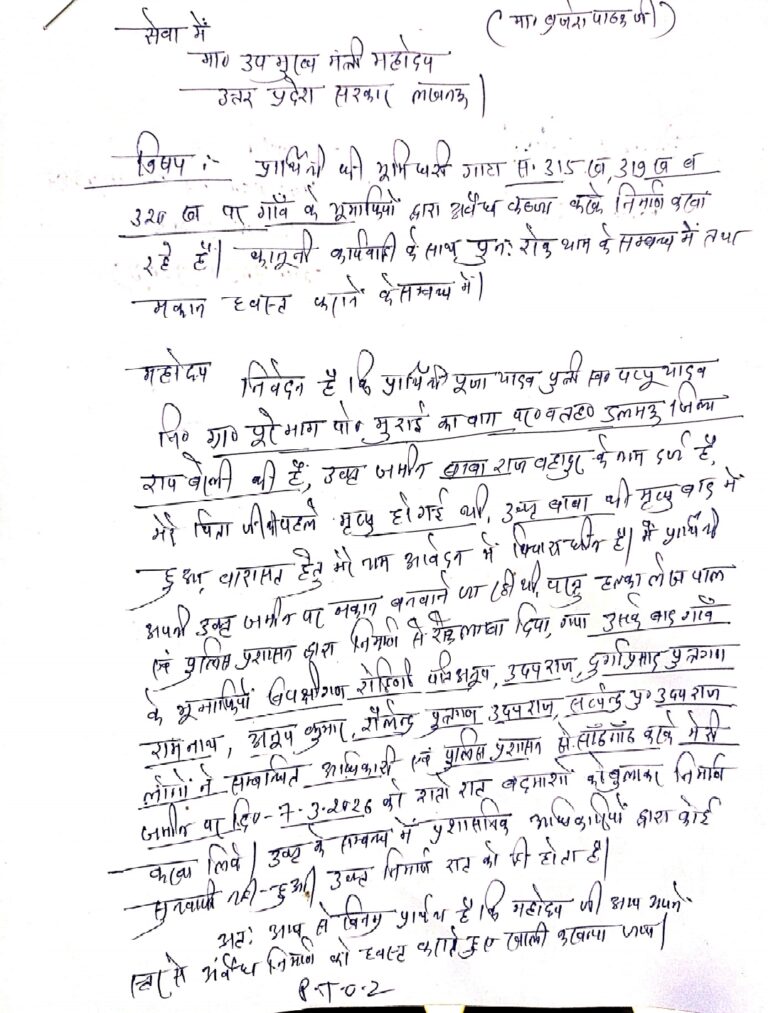 (मा० बृजेश पाठक जी)
सेवा में
मा० उप मुख्य मंत्री महोदय
उत्तर प्रदेश सरकार लखनऊ|
विषय :- प्रार्थिनी की भूमिधरी गाटा सं. 315 ख, 319 ख व
320 ख पर गाँव के भूमाफियों द्वारा अवैध कब्जा करके निर्माण करवा
रहे हैं| कानूनी कार्यवाही के साथ पुनः रोक थाम के सम्बन्ध में तथा
मकान ध्वस्त कराने के सम्बन्ध में|
महोदय निवेदन है कि प्रार्थिनी पूजा यादव पुत्री स्व० पप्पू यादव
नि० ग्रा० पूरे भाग पो० मुराई का बाग पर० व तह० डलमऊ जिला
राय बरेली की है, उक्त जमीन बाबा राज बहादुर के नाम दर्ज है,
मेरे पिता जी की पहले मृत्यु हो गई थी, उक्त बाबा की मृत्यु बाद में
हुआ, वारासत हेतु मेरे नाम आवेदन में विचाराधीन है| मैं प्रार्थिनी
अपनी उक्त जमीन पर मकान बनवाने जा रही थी, परन्तु हलका लेखपाल
एवं पुलिस प्रशासन द्वारा निर्माण से रोक लगवा दिया, गया उसके बाद गाँव
के भूमाफियों विपक्षीगण रोहिणी पति अनूप, उदयराज, दुर्गाप्रसाद पुत्रगण
रामनाथ, अनूप कुमार, शैलेन्द्र पुत्रगण उदयराज, सत्येन्द्र पु० उदयराज
लोगों ने सम्बन्धित अधिकारी एवं पुलिस प्रशासन से साँठगाँठ करके मेरी
जमीन पर दि०- 7.3.2026 को रातो रात बदमाशों को बुलाकर निर्माण
करवा लिये| उक्त के सम्बन्ध में प्रशासनिक अधिकारियों द्वारा कोई
सुनवायी नहीं हुआ उक्त निर्माण रात को ही होता है|
अतः आप से विनम्र प्रार्थना है कि महोदय जी आप अपने
स्तर से अवैध निर्माण को ध्वस्त कराते हुए खाली करवाया जाय|
P.T.O.2